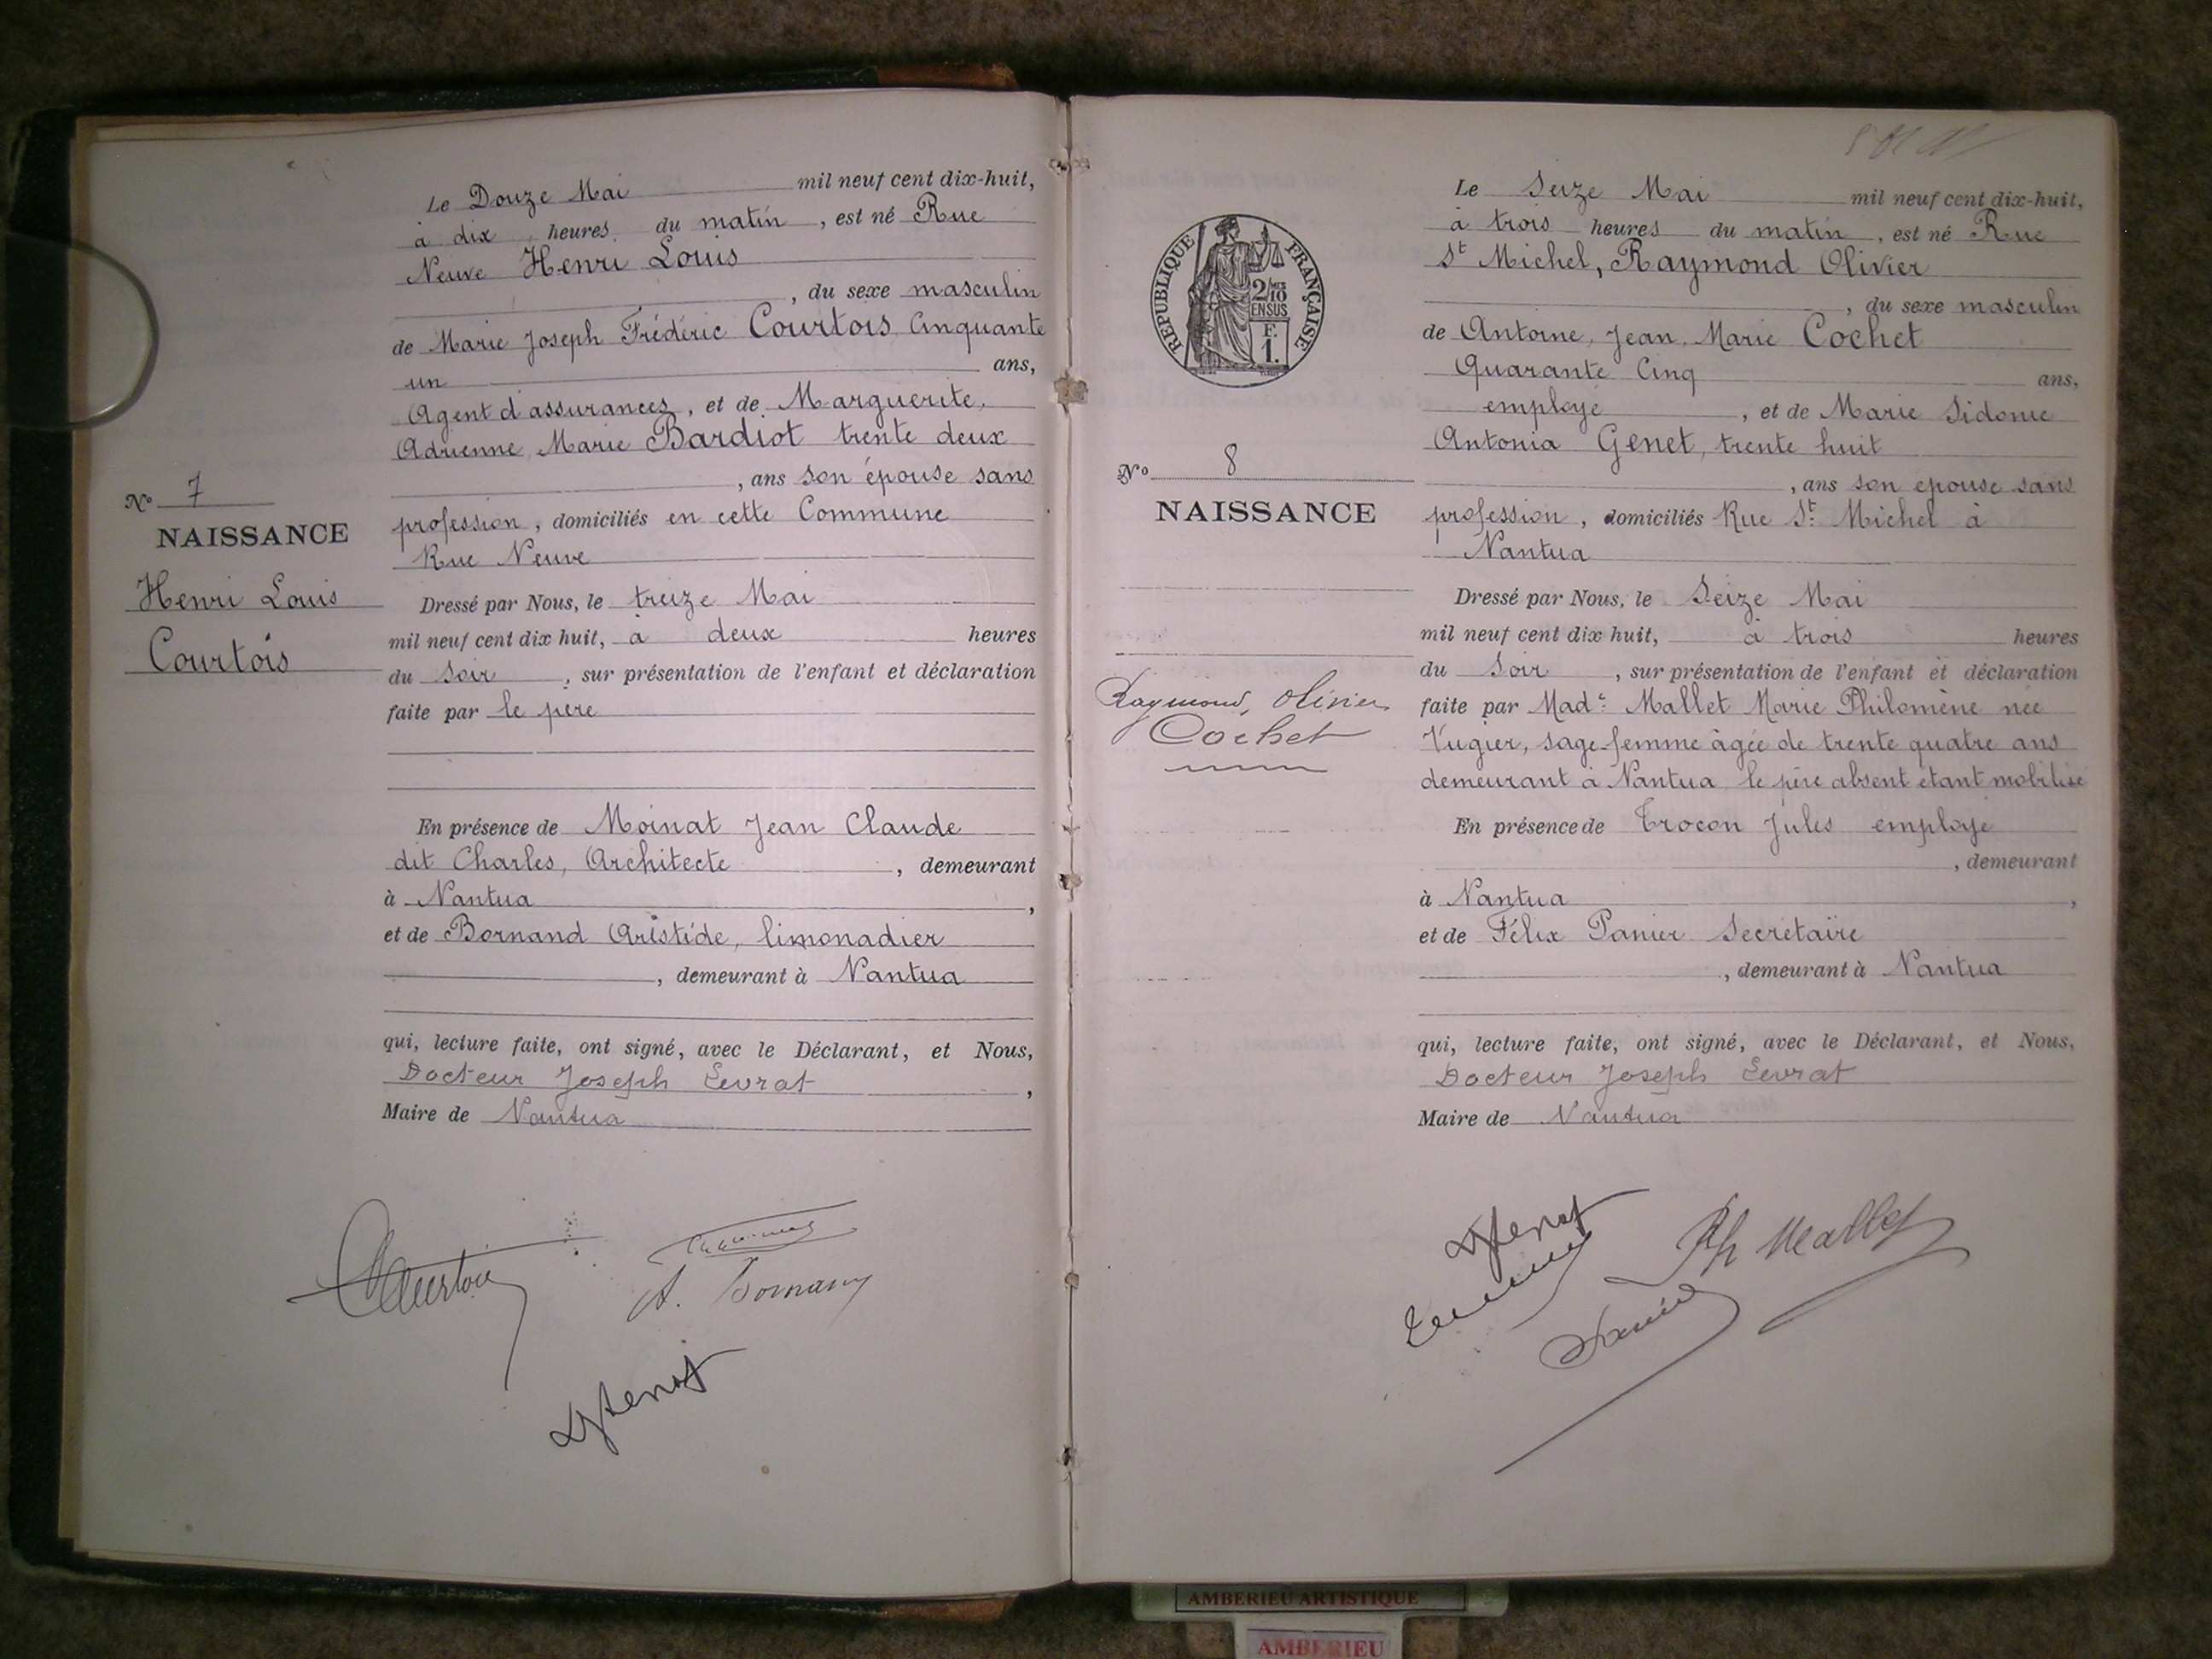 Le Douze Mai mil neuf cent dix-huit,
à dix heures du matin, est né Rue
Neuve Henri Louis
, du sexe masculin
de Marie Joseph Frédéric Courtois Cinquante
un ans,
Agent d'assurances, et de Marguerite,
Adrienne Marie Bardiot trente deux
, ans son épouse sans
profession, domiciliés en cette Commune
Rue Neuve
No 7
NAISSANCE
Henri Louis
Courtois
Dressé par Nous, le treize Mai
mil neuf cent dix huit, à deux heures
du soir, sur présentation de l'enfant et déclaration
faite par le père
En présence de Moinat Jean Claude
dit Charles, Architecte, demeurant
à Nantua,
et de Bornand Aristide, limonadier
, demeurant à Nantua
qui, lecture faite, ont signé, avec le Déclarant, et Nous,
Docteur Joseph Levrat,
Maire de Nantua
Courtois
A. Bornand
REPUBLIQUE FRANÇAISE
2/10
EN SUS
F.
1.
Le Seize Mai mil neuf cent dix-huit,
à trois heures du matin, est né Rue
St Michel, Raymond Olivier
, du sexe masculin
de Antoine, Jean, Marie Cochet
Quarante Cinq ans,
employé, et de Marie Sidonie
Antonia Genet, trente huit
, ans son epouse sans
profession, domiciliés Rue St Michel à
Nantua
No 8
NAISSANCE
Raymond, Olivier
Cochet
Dressé par Nous, le Seize Mai
mil neuf cent dix huit, à trois heures
du Soir, sur présentation de l'enfant et déclaration
faite par Made Mallet Marie Philomène née
Vugier, sage-femme âgée de trente quatre ans
demeurant à Nantua le père absent etant mobilisé
En présence de Trocon Jules employé
, demeurant
à Nantua,
et de Félix Panier Secrétaire
, demeurant à Nantua
qui, lecture faite, ont signé, avec le Déclarant, et Nous,
Docteur Joseph Levrat
Maire de Nantua
Ph Mallet
AMBERIEU ARTISTIQUE
AMBERIEU